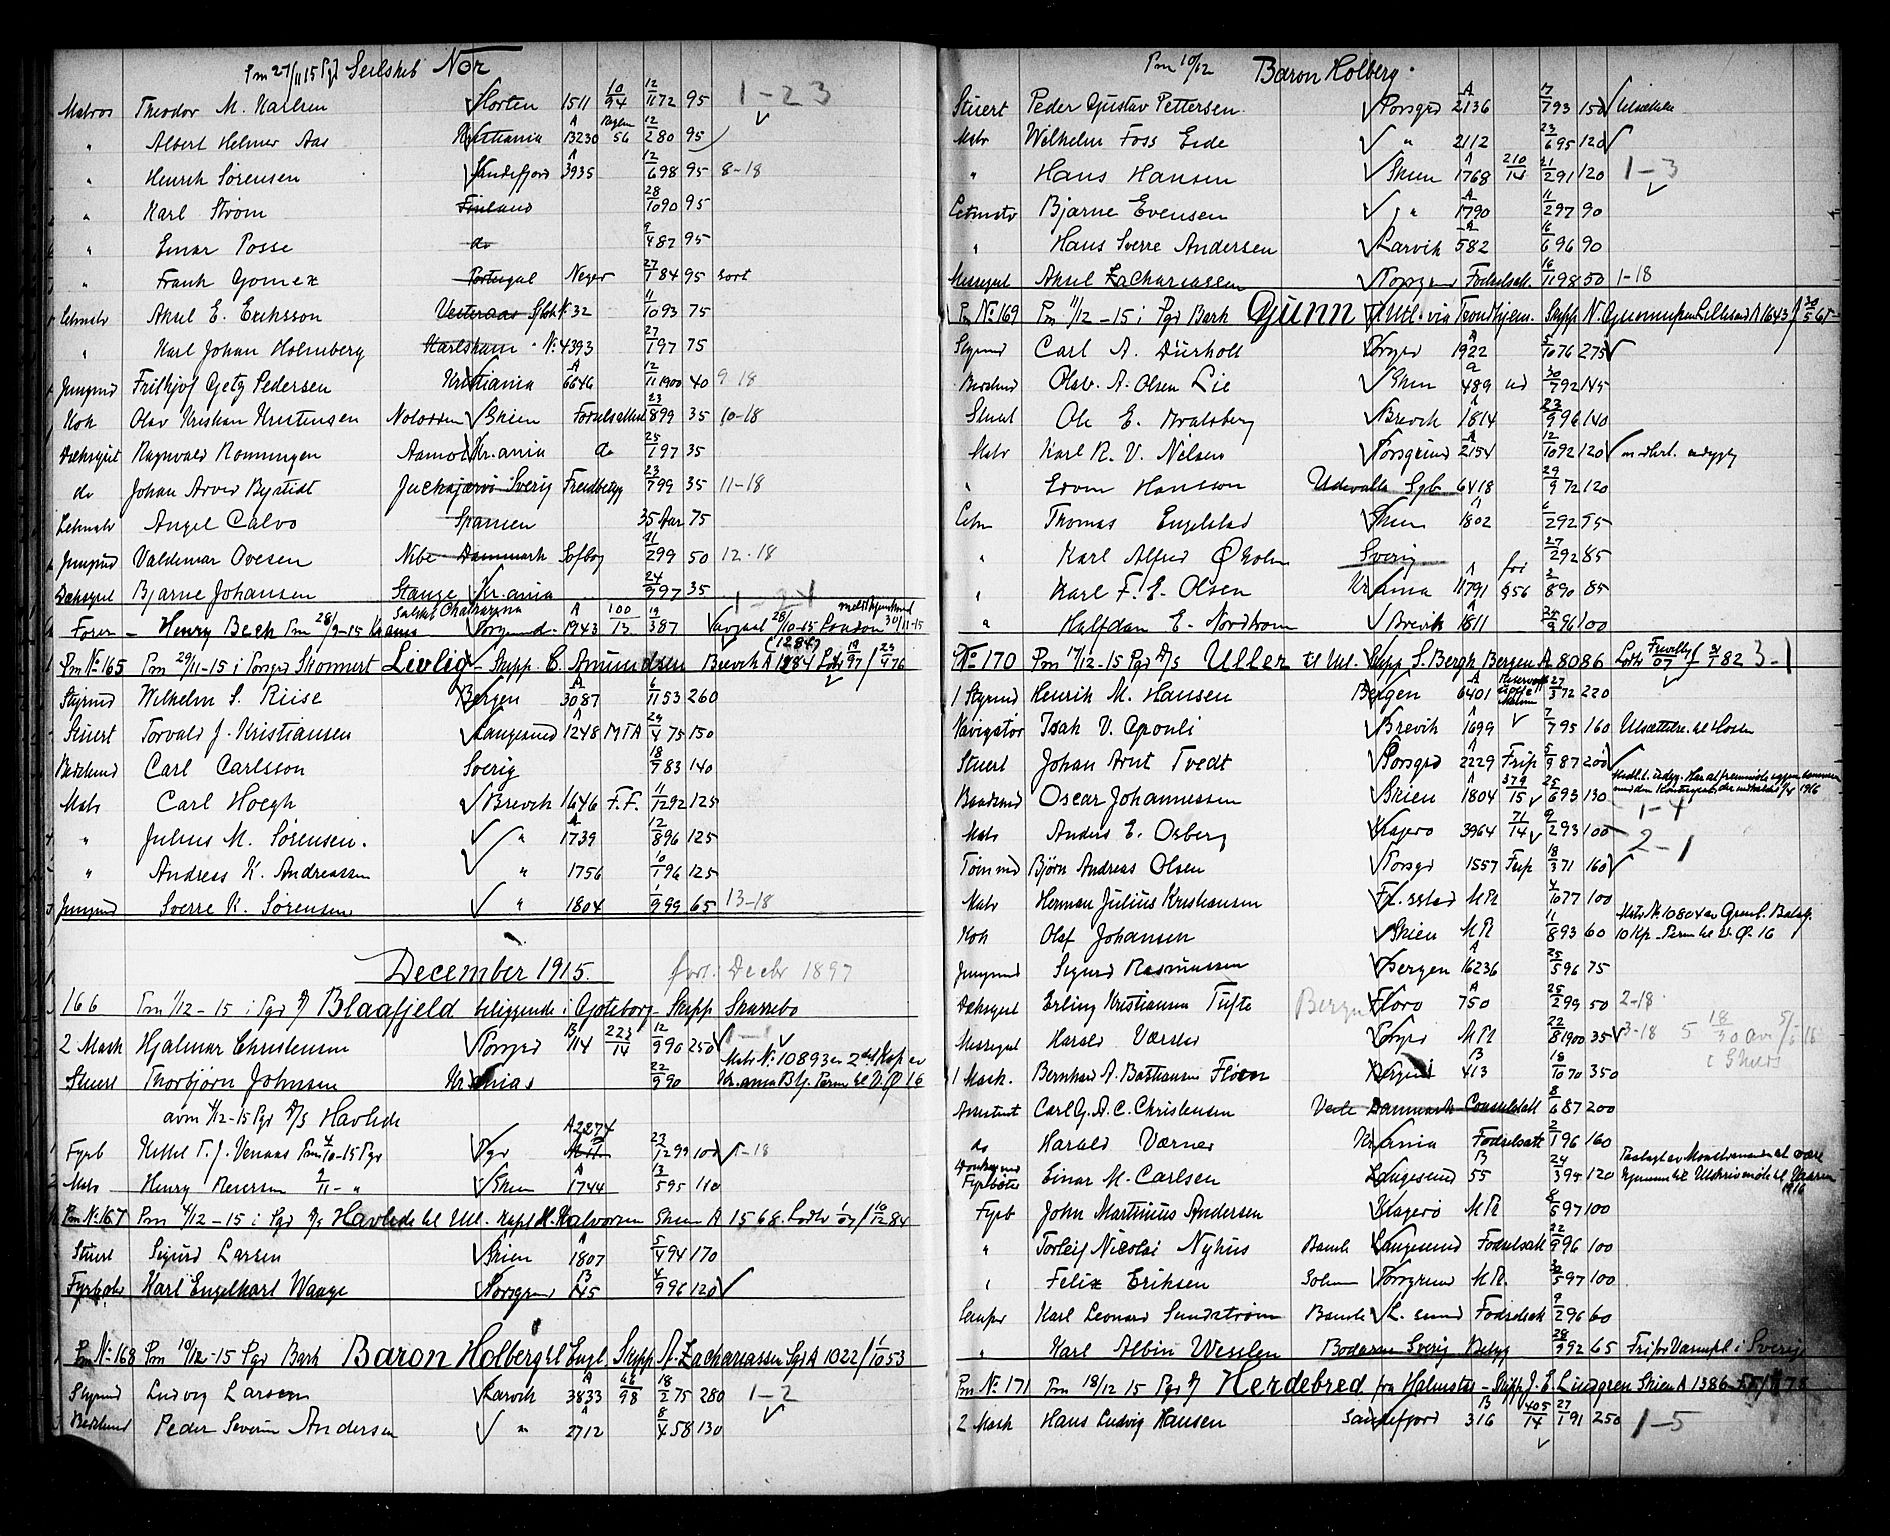 Pm 27/11 15 Pgd Seilskib Nor
Matros Theodor M. Karlsen Horten 1511 10/94 12/11 72 95 1-23
" Albert Helmer Aas Kristiania A 13230 56 12/2 80 95
" Henrik Sørensen Sandefjord A 3935 12/6 98 95 8-18
" Karl Strøm Finland 28/10 90 95
" Einar Posse do 9/4 87 95
" Frank Gomez Portugal Neger 27/1 84 95 sort
Letmatr Aksel E. Eriksson Vesteraas 32 11/10 93 75
" Karl Johan Holmberg Karlsham No. 4393 27/1 97 75
Jungmd Frithjof Getz Pedersen Kristiania A 6646 12/11 1900 40 9-18
Kok Olav Kristian Kristensen Notodden Skien Fødselsattest 23/8 99 35 10-18
Dæksgut Ragnvald Rønningen Aamot Kr.ania do 25/1 97 35
do Johan Arvid Bystidt Juckasjærvi Sverig Fredbetyg 23/7 99 35 11-18
Letmatr Angel Calvo Spanien 35 Aar 75
Jungmd Valdemar Ovesen Nibe Danmark Søfbog 21/2 99 50 12-18
Dæksgut Bjarne Johansen Stange Kr.ania 24/9 97 35 1-24
Fører - Henry Beck Pm 28/9-15 Porsgrund A 1943 100/13 19/3 87 avgaat 28/10-15 London 30/11-15
Pm No 165 Pm 29/11-15 i Porsgrd Skonnert Livlig - Skipp. C. Amundsen Brevik A 1284 (1284) Lods 19/97 / 23/4 76
Styrmd Wilhelm S. Riise Bergen A 3087 6/11 53 260
Stuert Torvald J. Kristiansen Langesund A 1248 MTA 29/4 75 150
Bestmand Carl Carlsson Sverig 18/7 83 140
Matr Carl Hoegh Brevik 1646 F.F. 11/12 92 125
" Julius M. Sørensen. " A 1739 12/8 96 125
" Andreas K. Andreassen " 1756 10/1 96 125
Jungmd Sverre K. Sørensen " 1804 1/9 99 65 13-18
December 1915. Decbr 1897
166 Pm 1/12-15 i Pgd D/S Blaafjeld beliggende i Gøteborg - Skipp Skarrebo
2 Mask Hjalmar Christensen Porsgrd B 114 223/14 12/9 90 250 1-1
Stuert Thorbjørn Johnsen Kr.anias 22/9 90 Matr No. 10893 av 2det Komp av Kr.ania Btj. Perm til V. Ø 16
avm 4/12-15 Pgd D/S Havlide
Fyrb Kittel T. J. Venaas Pm 4/10-15 Pgd Pgr A 2274 23/12 99 100 1-18
Matr Henry Reiersen 2/11 - " Skien A 1744 13/5 95 110
Pm No: 167 Pm 4/12-15 i Pgd D/S Havlide til Utl. Kapt H. Halvorsen Skien A 1568. Lods 1/07 / 10/12 84
Stuert Sigurd Larsen Skien A 1807 5/4 94 170
Fyrbøder Karl Engelhart Waage Porsgrund B 145 4/9 96 120
Pm No: 168 Pm 10/12-15 Pgd Bark Baron Holberg til Engl Skipp A. Zachariassen Pgd A 1022 / 1/10 53
Styrmd Ludvig Larsen Larvik A 3833 46/98 18/2 75 280 1-2
Bestmand Peder Severin Andersen " A 2712 8/4 58 130
Pm 10/12 Baron Holberg.
Stuert Peder Gustav Pettersen Porsgrd A 2136 17/7 93 150
Matr Wilhelm Foss Eide " 2112 23/6 95 120
" Hans Hansen Skien A 1768 210/14 21/2 91 120 1-3
Letmatr Bjarne Evensen " A 1790 11/2 97 90
" Hans Sverre Andersen Larvik A 582 16/6 96 90
Messegut Aksel Zachariassen Porsgrund Fødselsatt. 16/11 98 50 1-18
Pm No: 169 Pm 11/12-15 i Pgd Bark Gunn til Utl. via Trondhjem. Skipp N. Gunnufsen Lillesand A 1643 / 30/5 65
Styrmd Carl A. Dürholt Porsgrd A 1922 5/10 76 275
Bestmand Olav. A. Olsen Lie Skien a 489 30/7 92 145
Stuert Ole E. Kvalsberg Brevik A 1814 23/9 96 140
Matr Karl R. V. Nielsen Porsgrund A 2154 12/10 92 120
" Edvin Hansson Udevalla Sgb 6418 29/9 72 120
Letm Thomas Engelstad Skien A 1802 6/2 92 95
" Karl Alfred Øholm Sverig 27/2 92 85
" Karl F. E. Olsen Kr.ania A 11791 for §56 2/8 90 85
" Halfdan E. Nordbom Brevik A 1811 25/9 96 100
No: 170 Pm 17/12-15 Pgd D/S Uller til Utl. Skipp S. Bergh Bergen A 8086 Lods Frivillig/07 / 31/1 82 3-1
1 Styrmd Henrik M. Hansen Bergen A 6401 27/3 72 220
Navigatør Isak V. Aponli Brevik A 1699 7/7 95 160 Utsættelse til Høsten
Stuert Johan Arnt Tvedt Porsgrd A 2229 Frip 5/9 87 200
Baadsmd Oscar Johannessen Skien A 1804 379/15 25/6 93 130 1-4
Matr Anders E. Osberg Kragerø 3964 71/14 9/2 93 100 2-1
Tømmd Bjørn Andreas Olsen Porsgrd 1557 Frip 18/3 71 160
Matr Herman Julius Kristiansen Fr.stad MR 4/10 77 100
Kok Olaf Johansen Skien MR 11/8 93 60 Matr No. 10804 av Grenl. Bataj. 10 Kp. Perm til V. Ø. 16
Jungmand Sigurd Rasmussen Bergen A 16236 25/5 96 75
Dæksgut Erling Kristiansen Tufte Bergen Florø A 750 25/2 99 50 2-18
Messegut Harald Værslev Porsgrd MR 22/8 1900 35 3-18 5 18/30 av 5/5 16 i Skien
1 Mask. Bernhard A. Bastiansen Floen Bergen B 413 18/10 70 350
Assistent Carl G. A. C. Christensen Veile Danmark Consulatatt 8/6 87 200
do Harald Værner Kr.ania Fødselsatt 2/1 96 160
Donkeymd Fyrbøter Einar M. Carlsen Langesund B 55 24/3 95 120 Paalagt av Mønstremanden at være hjemme til Utskrivmøde til Vaaren 1916
Fyrb John Martinius Andersen Kragerø MR 6/6 97 100
" Torleif Nicolai Nyhus Bamle Langesund Fødselsatt 22/9 96 100
" Felix Eriksen Solum Porsgrund MR. 30/5 97 100
Lemper Karl Leonard Sundstrøm Bamle L.sund Fødselsatt 9/2 96 60
" Karl Albin Wesslen Bodarne Sverig Betyg 28/9 92 65 Fri for Værnepl i Sverig
Pm No: 171 Pm 18/12 15 Pgd D/S Herdebred fra Halmstad - Skipp J. E. Lindgren Skien A 1386 78
2 Mask Hans Ludvig Hansen Sandefjord B 316 405/14 27/1 91 250 1-5